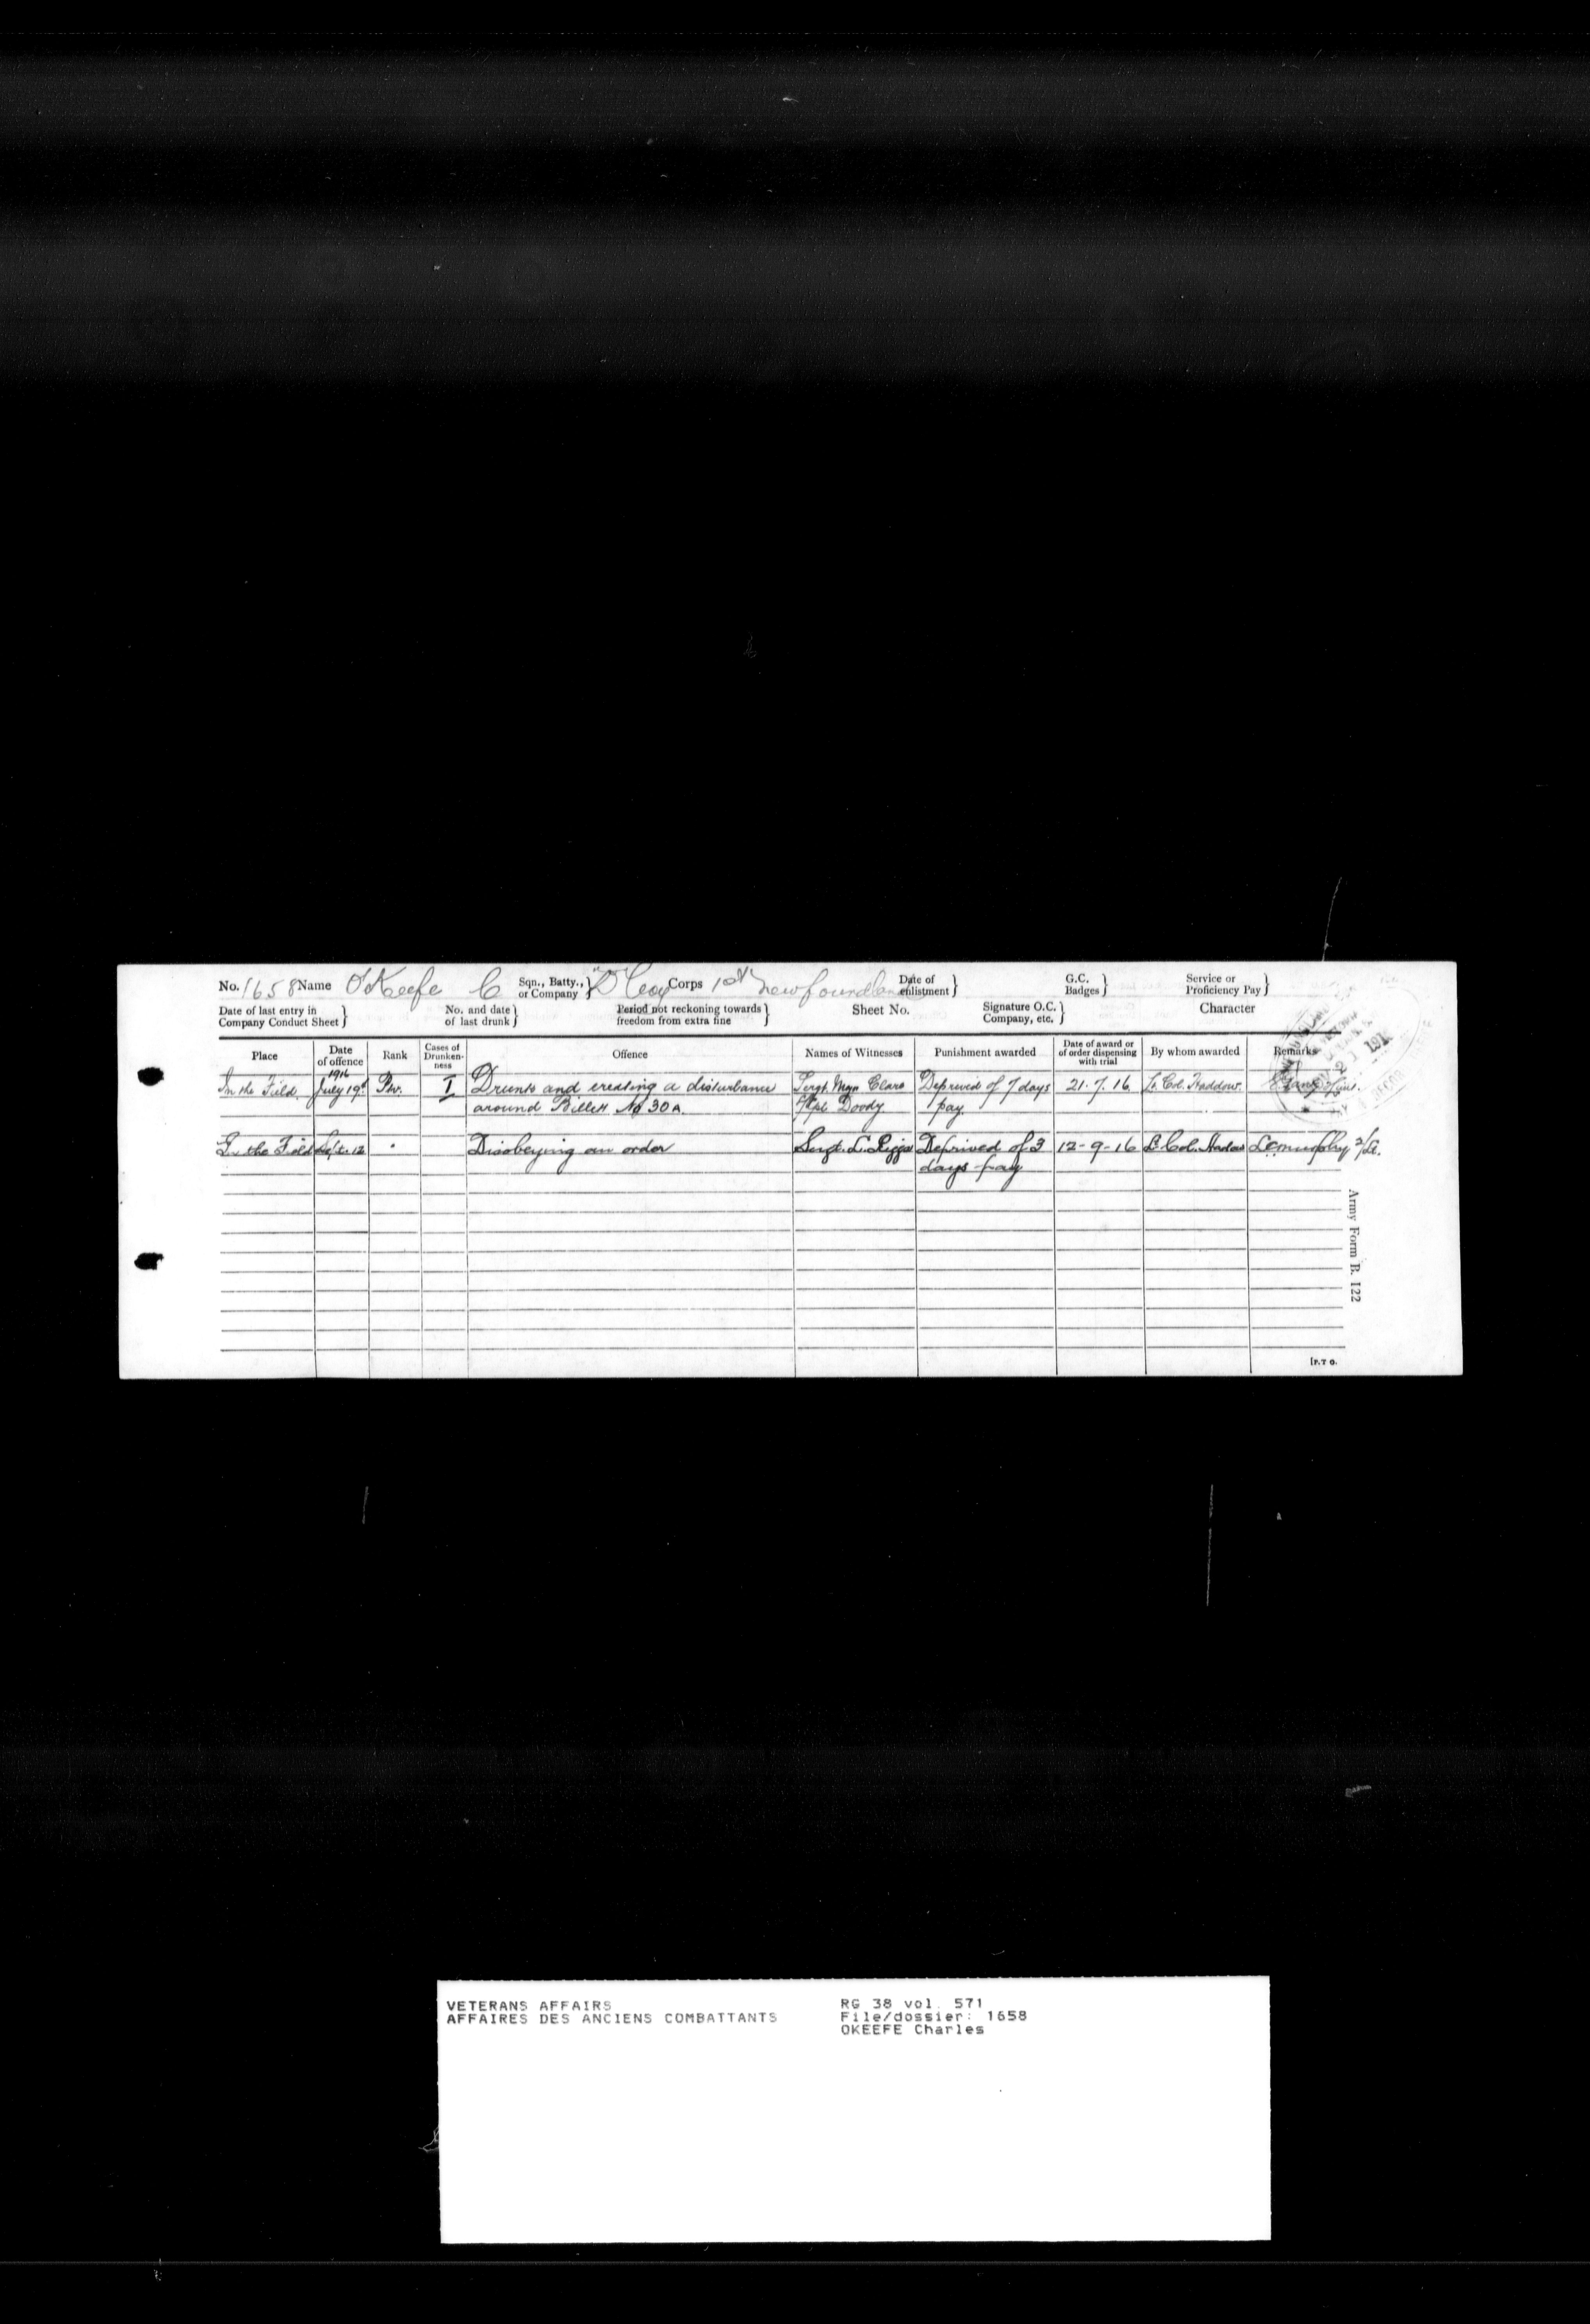 No. 1658 Name O'Keefe C Sqn., Batty., or Company } "D" Coy Corps 1st Newfoundland Date of enlistment } G.C. Badges } Service or Proficiency Pay }
Date of last entry in Company Conduct Sheet } No. and date of last drunk } Period not reckoning towards freedom from extra fine } Sheet No. Signature O.C. Company, etc. } Character
Place Date of offence Rank Cases of Drunkenness Offence Names of Witnesses Punishment awarded Date of award or of order dispensing with trial By whom awarded Remarks
1916
In the Field. July 19th Ptv. I Drunk and creating a disturbance Sergt. Mjn Clare Deprived of 7 days 21.7.16. Lt. Col. Haddow.
around Billett No 30A. Doody pay.
In the Field Sept. 12 " Disobeying an order Sergt. L. Riggs Deprived of 3 12-9-16 Lt Col. Hadow 2/Lt.
days pay
Army Form B. 122
[P.T O.
VETERANS AFFAIRS RG 38 vol. 571
AFFAIRES DES ANCIENS COMBATTANTS File/dossier: 1658
OKEEFE Charles